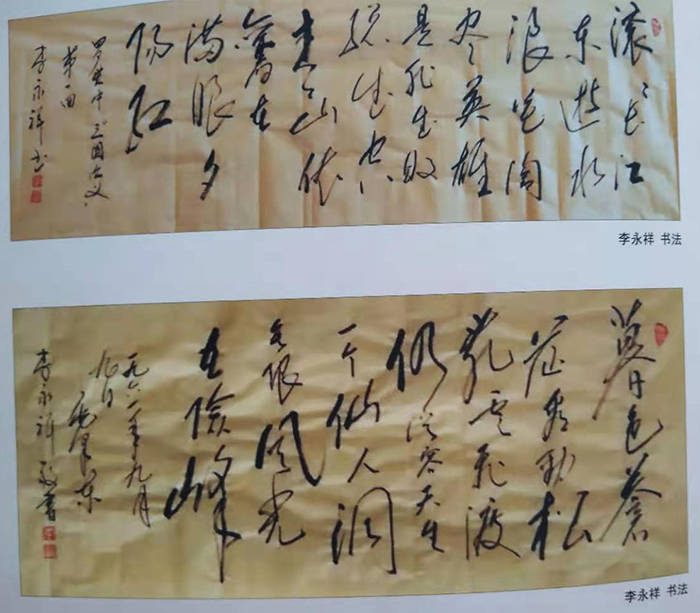 滚滚长江
东逝水
浪花淘
尽英雄
是非成败
成空
青山依
舊在
满眼夕
陽红
罗贯中三国演义
第一回
李永祥书
李永祥 书法
暮色苍
茫看劲松
乱云飞渡
仍从容天生
一个仙人洞
无限风光
在险峰
一九六一年九月
九日 毛泽东
李永祥敬書
李永祥 书法